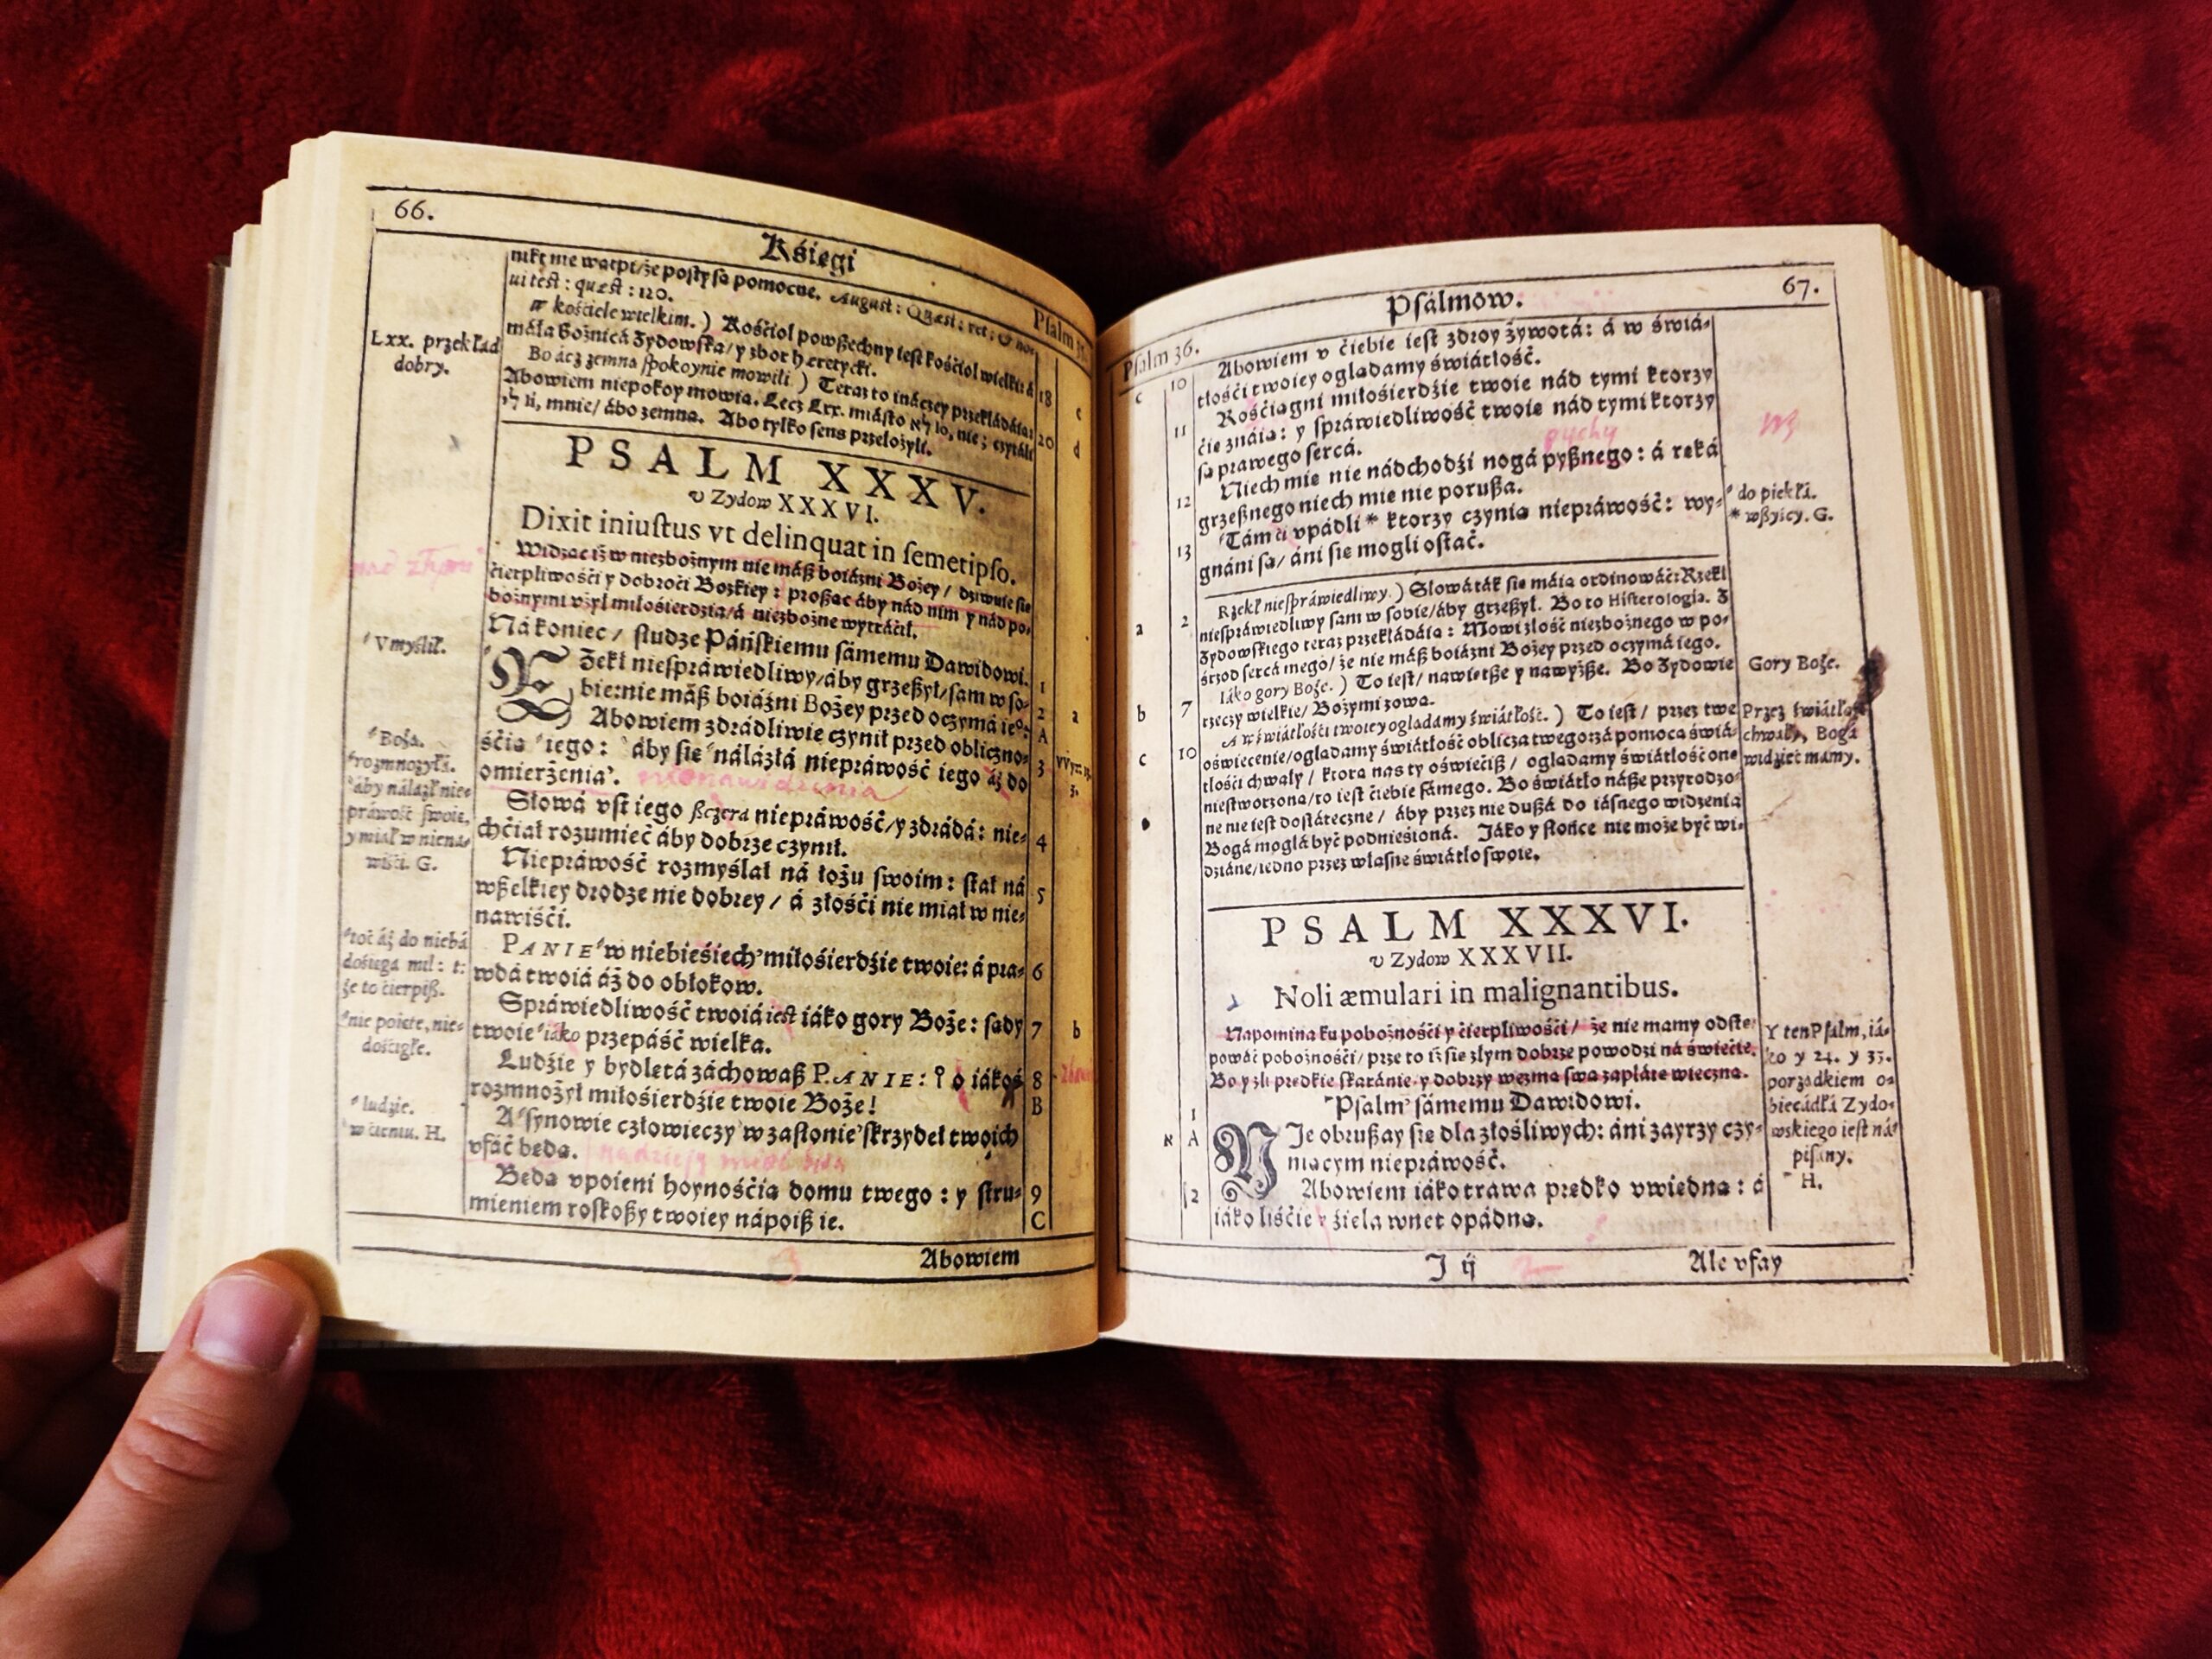 66.
Księgi
Psalm 35.
nikt nie wątpi/że posty są pomocne. August: Quæst: vet: & no-
ui test: quæst: 120.
W kościele wielkim.) Kościoł powßechny iest kościoł wielki: á
máła Bożnicá Żydowska/ y zbor heretycki.
Bo ácz zemną spokoynie mowili.) Teraz to ináczey przekłádáią:
Abowiem niepokoy mowią. Lecz Lxx. miásto לא lo, nie; czytáli
לי li, mnie/ ábo zemną. Abo tylko sens przełożyli.
18
20
c
d
Lxx. przekład
dobry.
PSALM XXXV.
v Zydow XXXVI.
Dixit iniustus vt delinquat in semetipso.
Widząc iż w niezbożnym nie máß boiáźni Bożey / dziwuie się
ćierpliwośći y dobroći Bozkiey : proßąc áby nád nim y nád po-
bożnymi vżył miłośierdzia/á niezbożne wytráćił.
Ná koniec / słudze Páńskiemu sámemu Dawidowi.
Rzekł niespráwiedliwy/áby grzeßył/sam w so-
bie: nie máß boiáźni Bożey przed oczymá ie°:
Abowiem zdrádliwie czynił przed obliczno-
śćią iego : áby się nálázłá niepráwość iego áż do
omierżenia. nienawidzenia
Słowá vst iego ßczera niepráwość/y zdrádá: nie-
chćiał rozumieć áby dobrze czynił.
Niepráwość rozmyślał ná łożu swoim : stał ná
wßelkiey drodze nie dobrey / á złośći nie miał w nie-
nawiśći.
PANIE w niebieśiech miłośierdźie twoie: á pra-
wdá twoiá áż do obłokow.
Spráwiedliwość twoiá iest iáko gory Boże : sądy
twoie iáko przepáść wielka.
Ludźie y bydłetá záchowaß PANIE: o iákoś
rozmnożył miłośierdźie twoie Boże!
A synowie człowieczy w zasłonie skrzydeł twoich
vfáć będą.
Będą vpoieni hoynośćią domu twego : y stru-
mieniem roskoßy twoiey nápoiß ie.
1
2
A
3
4
5
6
7
8
B
9
C
a
b
Vmyślił.
Bogá.
rozmnożyłá.
áby nálazł nie-
práwość swoię,
y miał w niená-
wiśći. G.
áż do niebá
dośięga mił: t:
że to ćierpiß.
nie poięte, nie-
dośćigłe.
ludzie.
w ćieniu. H.
Abowiem
Psalm 36.
Psalmow.
67.
Abowiem v ćiebie iest zdroy żywotá: á w świá-
tłośći twoiey oglądamy świátłość.
Rośćiągni miłośierdźie twoie nád tymi ktorzy
ćie znáią: y spráwiedliwość twoię nád tymi ktorzy
są prawego sercá.
pychy
Niech mie nie nádchodźi nogá pyßnego: á ręká
grzeßnego niech mie nie porußa.
Tám ći vpádli * ktorzy czynią niepráwość: wy-
gnáni są/ áni się mogli ostáć.
do piekłá.
* wßyscy. G.
c
10
11
12
13
Rzekł niespráwiedliwy.) Słowá ták się máią ordinowáć: Rzekł
niespráwiedliwy sam w sobie/áby grzeßył. Bo to Histerologia. Z
Żydowskiego teraz przekłádáią : Mowi złość niezbożnego w po-
śrzod sercá mego/ że nie máß boiáźni Bożey przed oczymá iego.
Iáko gory Boże.) To iest/ nawiętße y nawyżße. Bo Żydowie
rzeczy wielkie/ Bożymi zową.
A w świátłośći twoiey oglądamy świátłość.) To iest / przez twe
oświecenie/oglądamy świátłość oblicza twego: zá pomocą świá-
tłośći chwały / ktorą nas ty oświećiß / oglądamy świátłość onę
niestworzoną/to iest ćiebie sámego. Bo świátło náße przyrodzo-
ne nie iest dostáteczne / áby przez nie dußá do iásnego widzenia
Bogá mogłá być podnieśioná. Iáko y słońce nie może być wi-
dźiáne/iedno przez własne świátło swoie.
a
2
b
7
c
10
Gory Boże.
Przez świátłość
chwały, Bogá
widzieć mamy.
PSALM XXXVI.
v Zydow XXXVII.
Noli æmulari in malignantibus.
Napomina ku pobożnośći y ćierpliwośći / że nie mamy odstę-
pować pobożnośći/ prze to iż się złym dobrze powodzi ná świećie.
Bo y źli prędkie skaránie, y dobrzy wezmą swą zapłatę wieczną.
Psalm sámemu Dawidowi.
NIe obrußay się dla złośliwych: áni zayrzy czy-
niącym niepráwość.
Abowiem iáko trawa prędko vwiędną : á
iáko liśćie y źiela wnet opádną.
1
א A
2
Y ten Psalm, iá-
ko y 24. y 33.
porządkiem o-
biecádłá Zydo-
wskiego iest ná-
pisány.
H.
I ij
Ale vfay